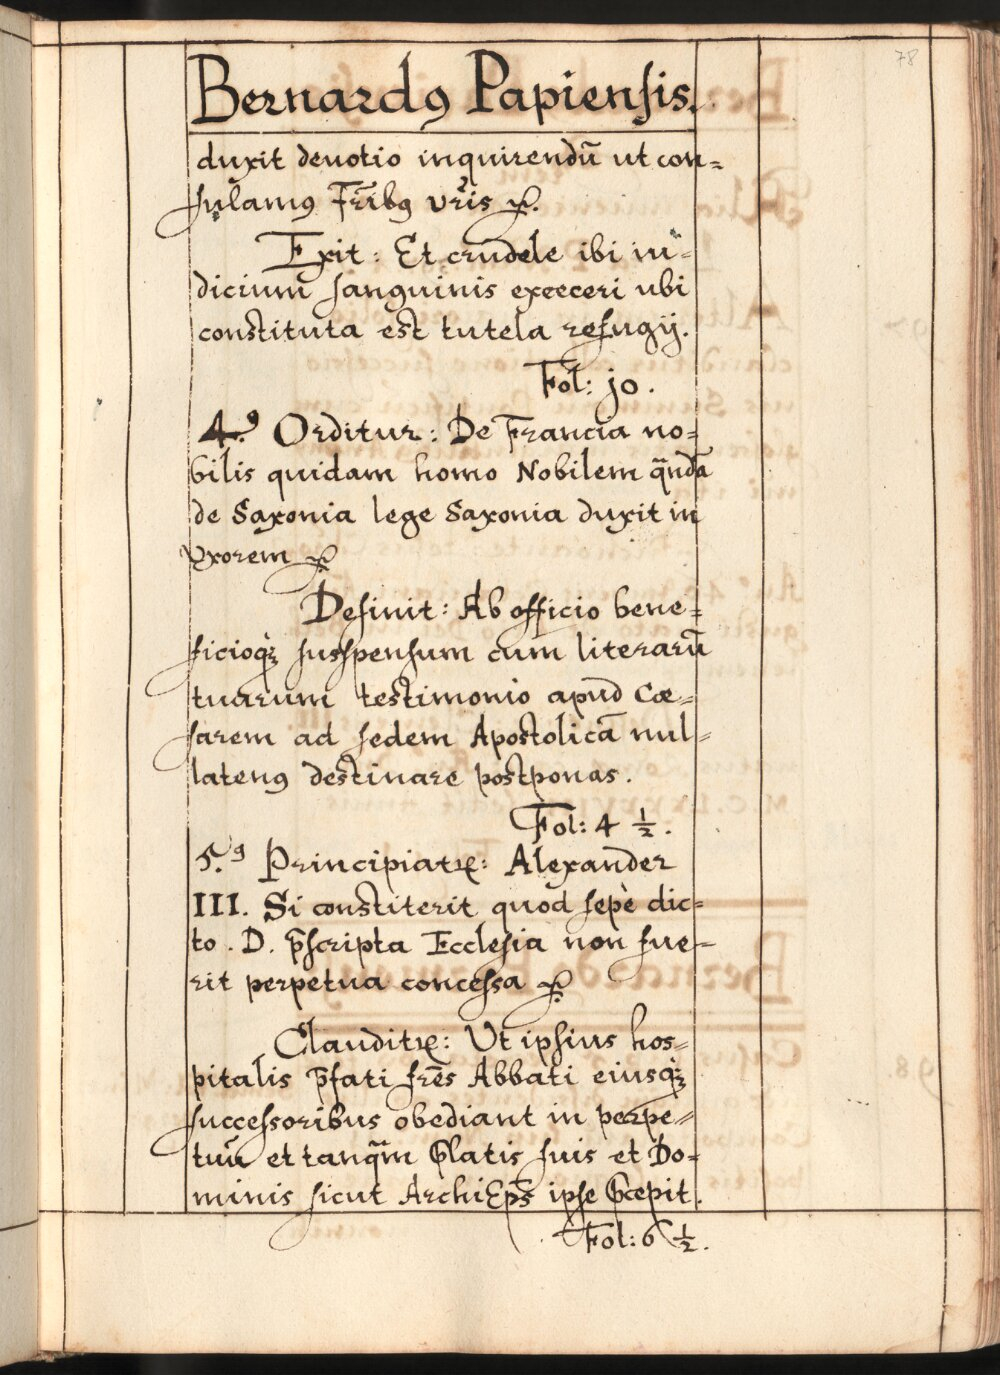 78
Bernardꝰ Papiensis.
duxit deuotio inquirendū ut con=
sulamꝰ Frībꝰ vr̃is ꝛc.
Exit: Et crudele ibi iu=
dicium sanguinis exerceri ubi
constituta est tutela refugij.
Fol: jo.
4.ꝰ Orditur: De Francia no=
bilis quidam homo Nobilem q̄ndā
de Saxonia lege Saxonia duxit in
Vxorem ꝛc
Definit: Ab officio bene=
ficioq́ꝫ suspensum cum literarū
tuarum testimonio apud Cæ=
sarem ad sedem Apostolicā nul=
latenꝰ destinare postponas.
Fol: 4 ½.
5.ꝰ Principiatꝝ: Alexander
III. Si constiterit quod sepè dic=
to. D. p̄scripta Ecclesia non fue=
rit perpetua concessa ꝛc
Clauditꝝ: Ut ipsius hos=
pitalis p̄fati fr̄es Abbati eiusq́ꝫ
successoribus obediant in perpe=
tuū et tanq̄m p̄latis suis et Do=
minis sicut ArchiEp̄s ipse p̄cepit.
Fol: 6 ½.
98.